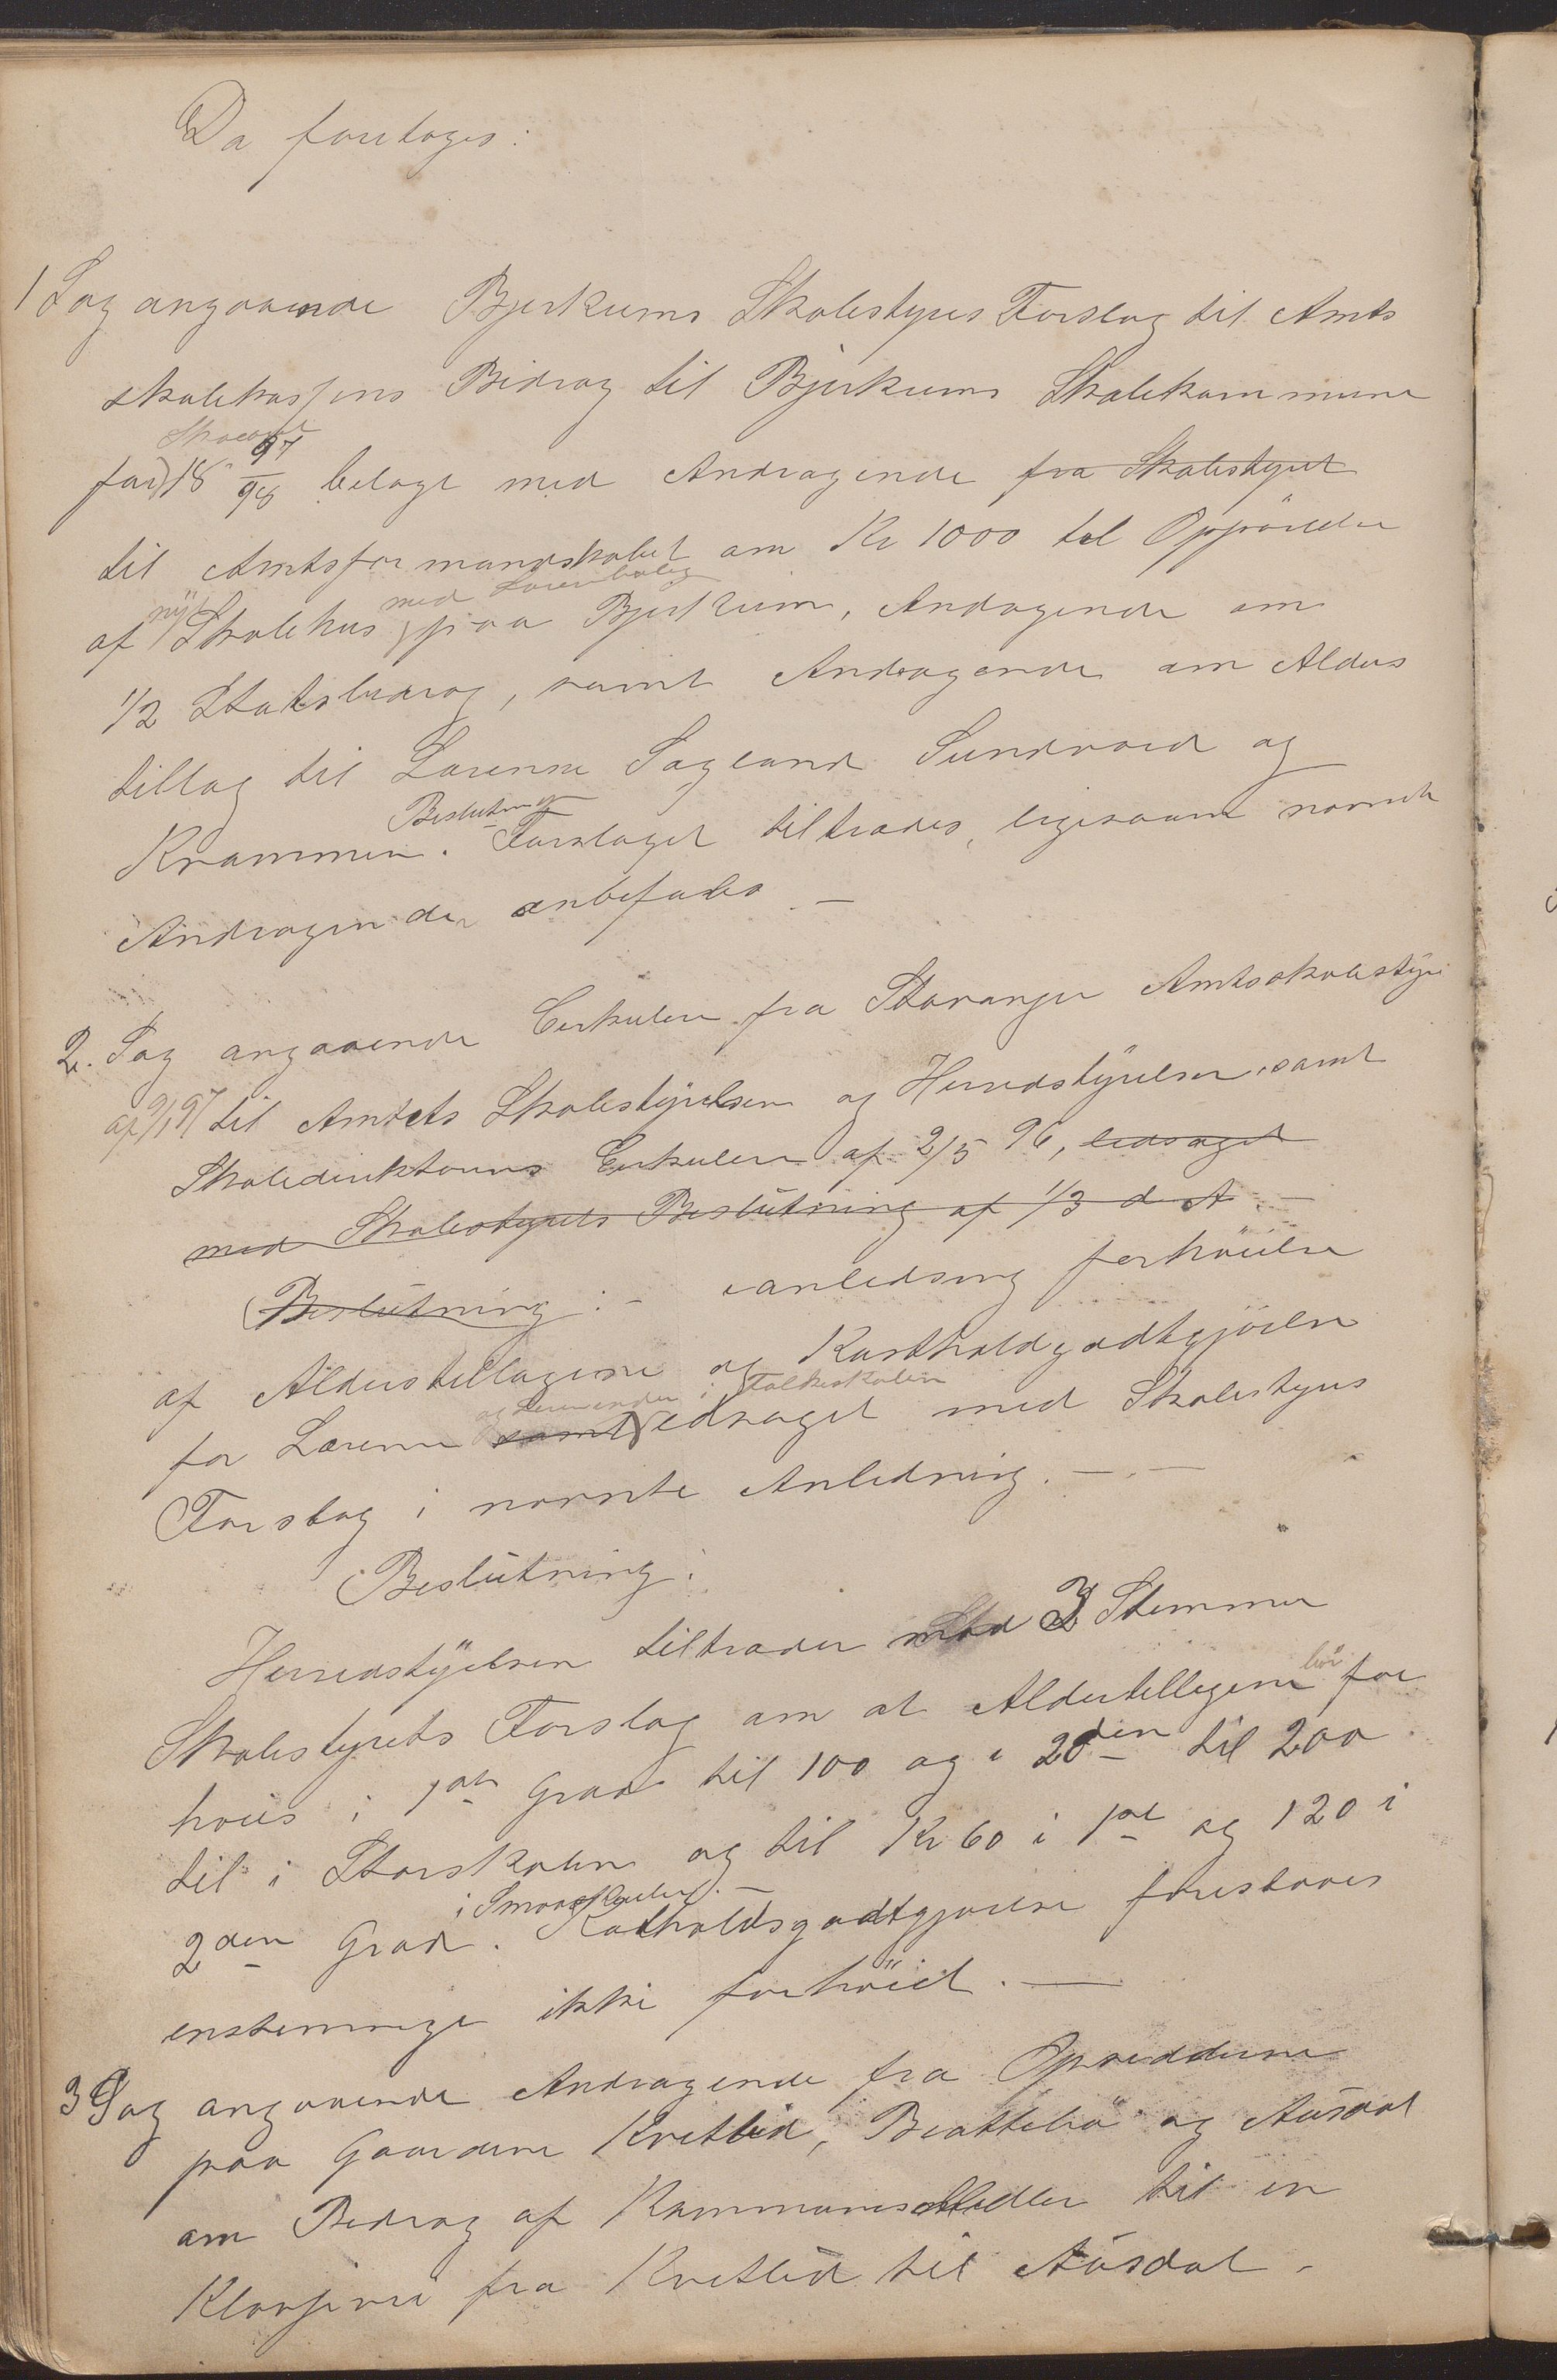 Da foretoges:
1 Sag angaaende Bjerkreims Skolestyres Forslag til Amts
skolekassens Bidrag til Bjerkreims Skolekommune
Skoleaaret
for 18 97/98 belagt med Andragende fra Skolestyret
til Amtsformandskabet om Kr 1000 til Opførelse
nyt med Lærerbolig
af Skolehus paa Bjerkreim, Andragende om
1/2 Statsbidrag, samt Andragende om Alders
tillæg til Lærerne Sagland Sundvord og
Beslutning
Krammen. Forslaget tiltrædes, ligesaam nævnte
Andragender anbefales. —
2. Sag angaaende Cirkulære fra Stavanger Amtsskolestyre
af 9/1 97 til Amtets Skolestyrelser og Herredstyrelser, samt
Skoledirektørens Cirkulære af 2/5 96, ledsaget
med Skolestyrets Beslutning af 1/3 d. A. —
Beslutning: - ianledning forhøielse
af Alderstillægene og Kostholdgodtgjørelse
og Lærerinder i Folkeskolen
for Lærerne samt ledsaget med Skolestyres
Forslag i nævnte Anledning. — . —
Beslutning:
Herredstyrelsen tiltræder mod 3 Stemmer
Skolestyrets Forslag om at Alderstillægene bør for
høies i 1ste Grad til 100 og i 2den til 200
til i Storskolen og til Kr 60 i 1ste og 120 i
i Smaaskolen. —
2den Grad. Kostholdsgodtgjørelse foreslaaes
enstemmige ikke forhøiet. —
3 Sag angaaende Andragende fra Opsidderne
paa Gaardene Kvetlid, Brattebø og Ausdal
om Bidrag af Kommunes Midler til en
Klopvei fra Kvetlid til Ausdal -